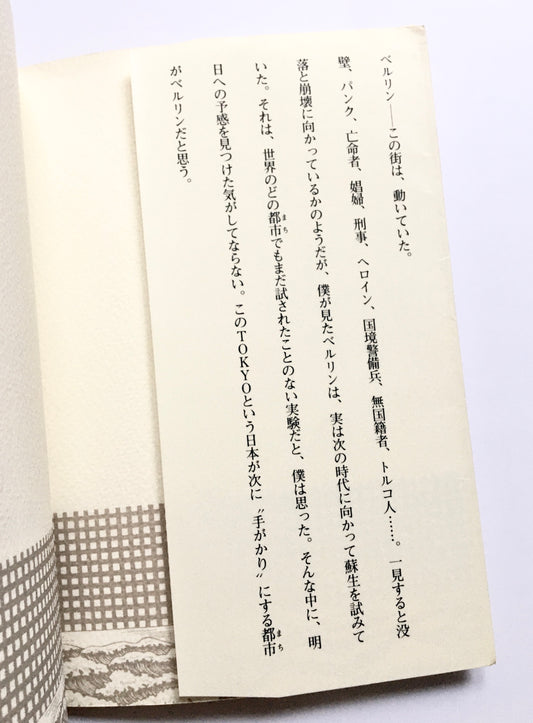 ベルリン――この街は、動いていた。
壁、パンク、亡命者、娼婦、刑事、ヘロイン、国境警備兵、無国籍者、トルコ人……。一見すると没
落と崩壊に向かっているかのようだが、僕が見たベルリンは、実は次の時代に向かって蘇生を試みて
いた。それは、世界のどの都市でもまだ試されたことのない実験だと、僕は思った。そんな中に、明
日への予感を見つけた気がしてならない。このTOKYOという日本が次に〝手がかり〟にする都市
がベルリンだと思う。
まち
まち